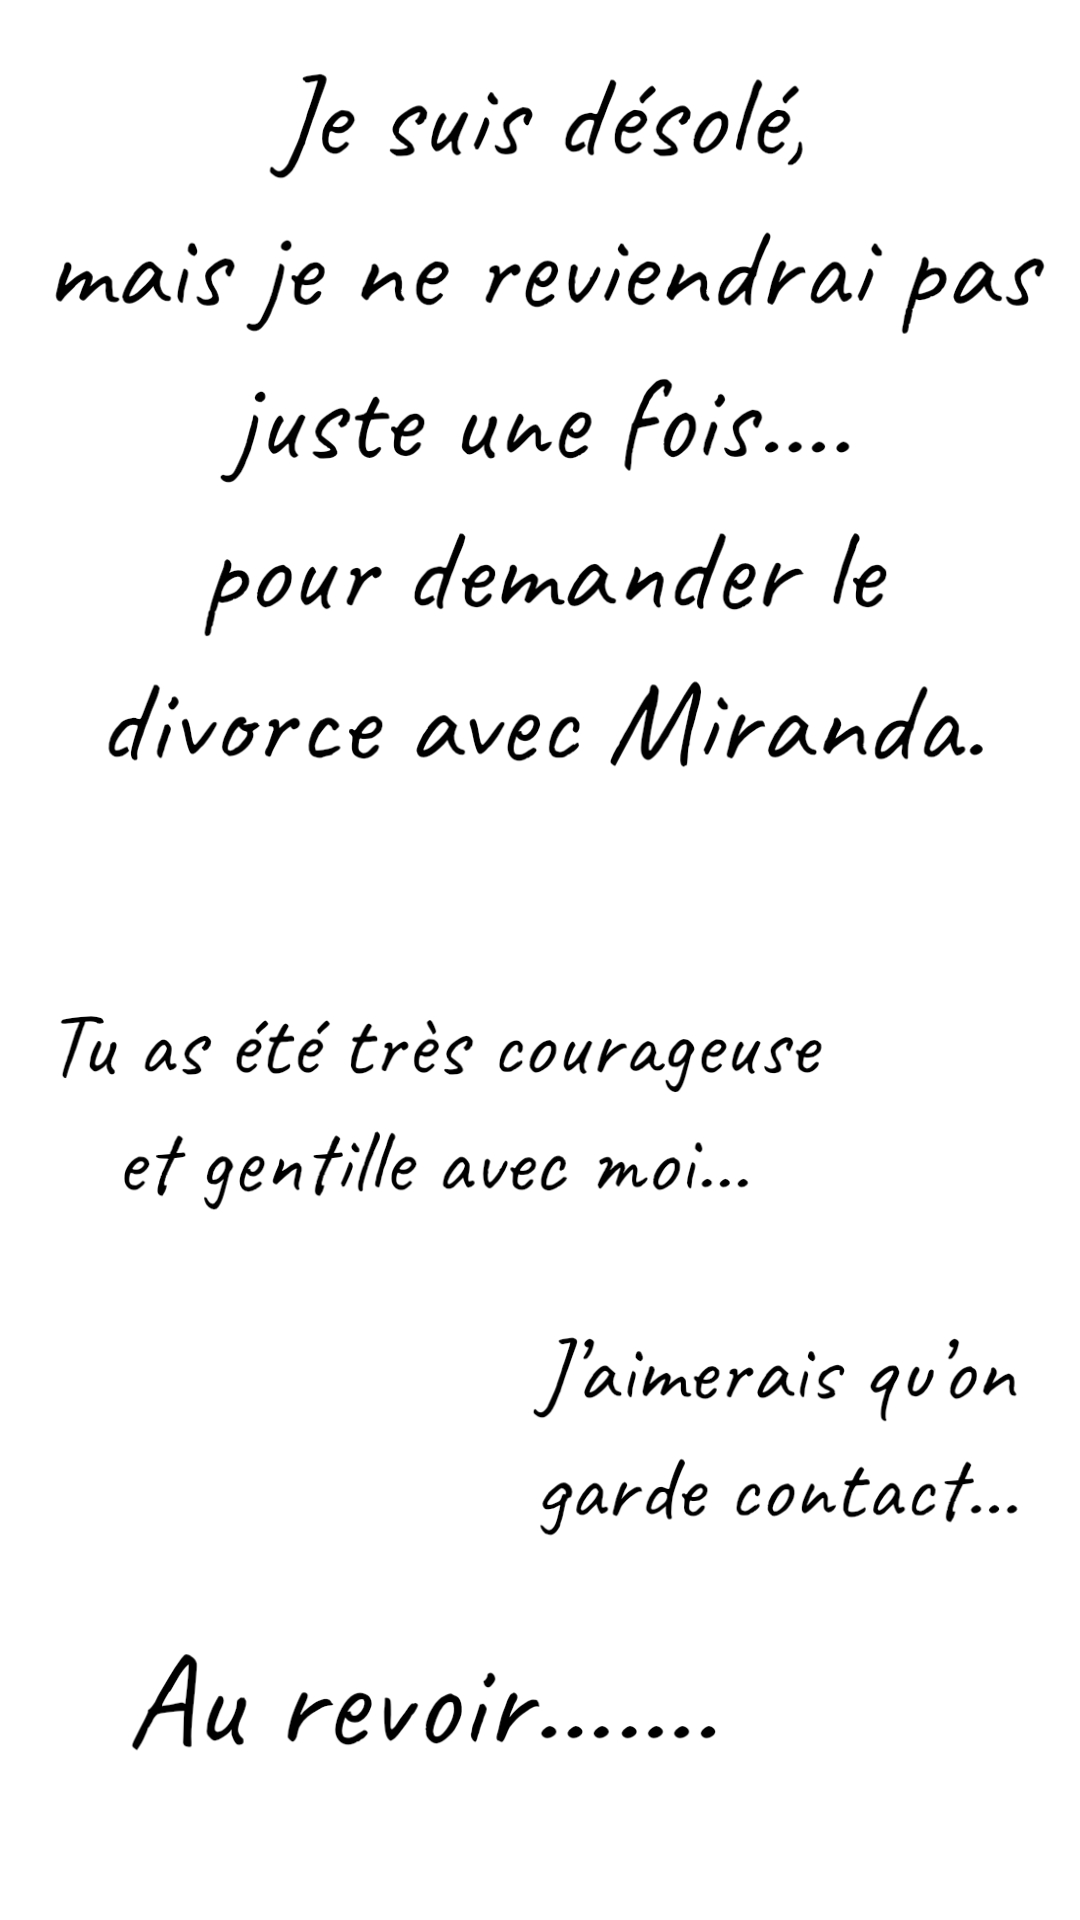 Je suis désolé,
mais je ne reviendrai pas
juste une fois....
pour demander le
divorce avec Miranda.
Tu as été très courageuse
et gentille avec moi...
J'aimerais qu'on
garde contact...
Au revoir.......